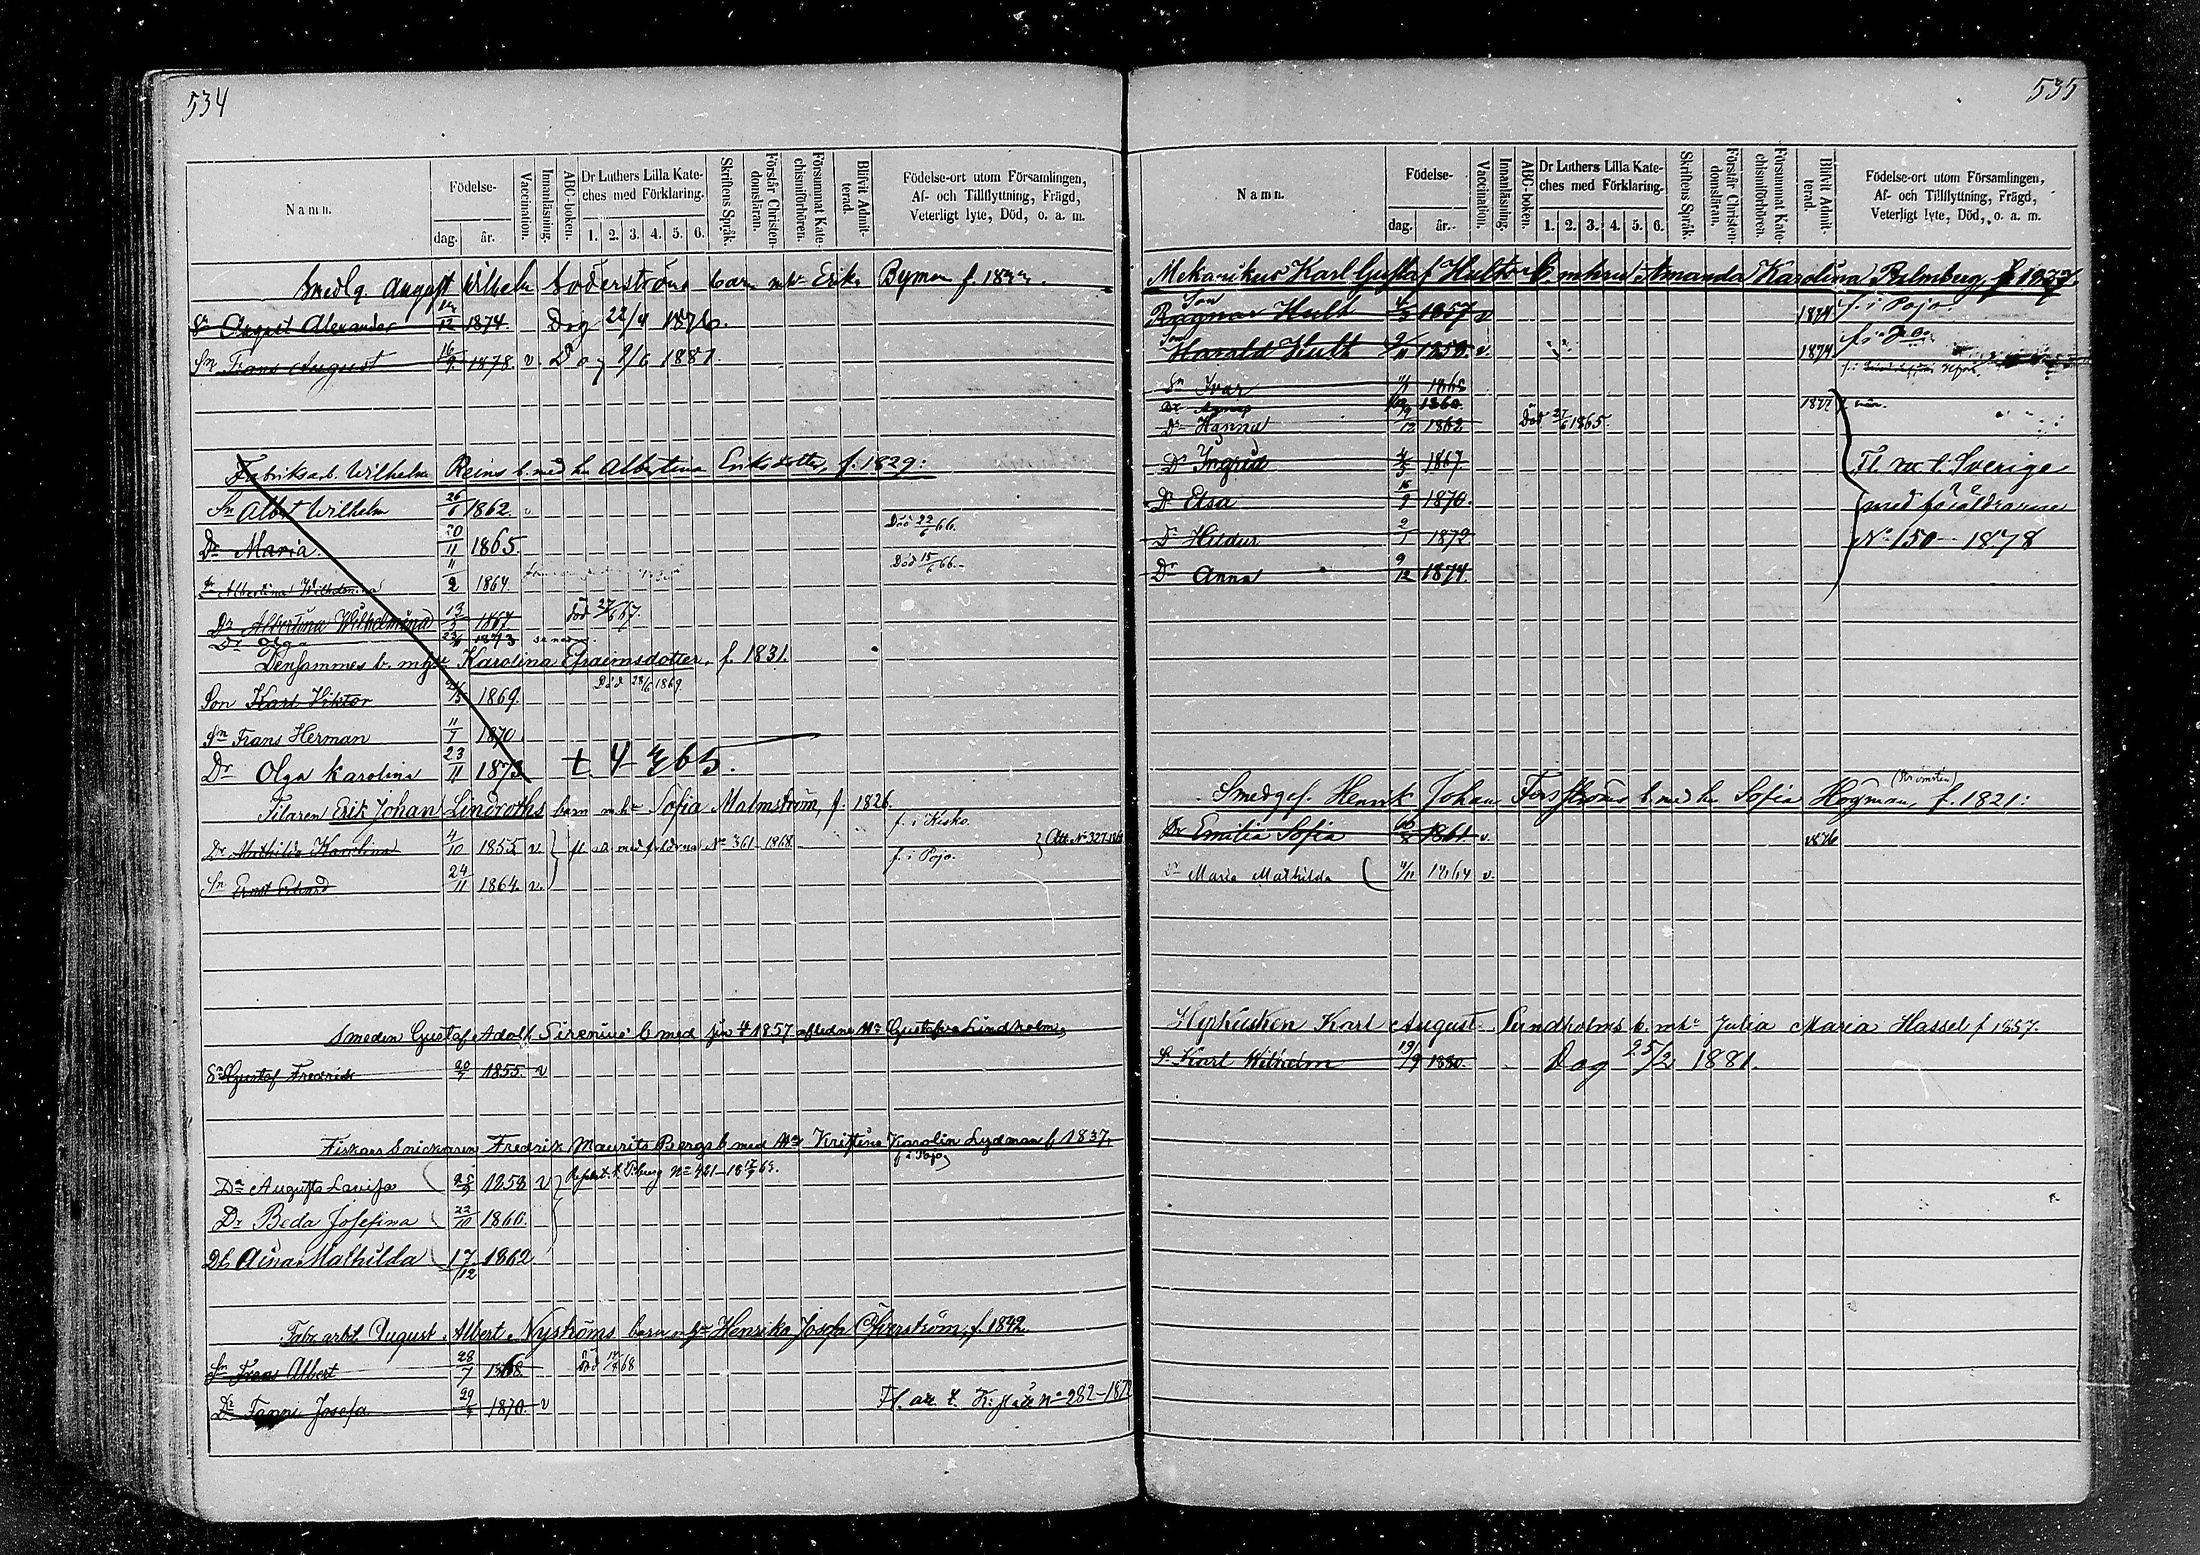 534
Namn. Födelse- dag. år. Vaccination. Innanläsning. ABC-boken. Dr Luthers Lilla Kateches med Förklaring. 1. 2. 3. 4. 5. 6. Skriftens Språk. Förstår Christendomsläran. Försummat Katechismiförhören. Blifvit Admitterad. Födelse-ort utom Församlingen, Af- och Tillflyttning, Frägd, Veterligt lyte, Död, o. a. m.
Smedlg. August Wilhelm Söderströms barn m. h. Erika Byman f.
Sn August Alexander 12 1874. Dog 22/4 1876.
Sn Frans August 16/9 1878. v. Dog 2/6 1881.
Fabriksarb. Wilhelm Reins b. med hu Albertina Eriksdotter, f. 1829:
Sn Albert Wilhelm 26/6 1862. v
Dr Maria. 20/11 1865. Död 22/6 66.
Albertina Wilhelmina 11/2 1864. Död 15/6 66.
Dr Albertina Wilhelmina 13/3 1867 död 27/6 67.
Dr Olga 1873
Densammes b. m. hu Karolina Efraimsdotter, f. 1831.
Son Karl Viktor 1869. Död 28/6 1869
Sn Frans Herman 11/7 1870
Dr Olga Karolina 23/11 1873 t. 4 365.
Filaren Erik Johan Lindroths barn m. hu Sofia Malmström, f. 1826.
Dr Mathilda Karolina 4/10 1855 v fl. med föräldrarna No 361-1868. f. i Kisko. Att. No 327-
Sn Ernst Edvard 24/11 1864. v. f. i Pojo.
Smeden Gustaf Adolf Sirenius' b med sin 1857 aflidna Hu Gustafva Lindholm,
Sn Gustaf Fredrik 20/7 1855. v
Fiskars Snickaren Fredrik Maurits Bergs b med Hu Kristina Karolin Lydman f. 1837.
f. i Pojo
Dr Augusta Lovisa 1858 v
Dr Beda Josefina 22/10 1860.
Dr Aina Mathilda 17/12 1862
Fabr. arbt. August Albert Nyströms barn m hu Henrika Josefa Öfverström, f. 1842.
Sn Frans Albert 28/7 1868 död 68
Dr Fanni Josefa 29 1870. v Fl. att t. No 282-187
535
Namn. Födelse- dag. år. Vaccination. Innanläsning. ABC-boken. Dr Luthers Lilla Kateches med Förklaring. 1. 2. 3. 4. 5. 6. Skriftens Språk. Förstår Christendomsläran. Försummat Katechismiförhören. Blifvit Admitterad. Födelse-ort utom Församlingen, Af- och Tillflyttning, Frägd, Veterligt lyte, Död, o. a. m.
Mekanikus Karl Gustaf Hults b. m hu Amanda Karolina Palmberg, f.
Son Ragnar Hult 1857 v 1874 f. i Pojo.
Son Harald Hult 1858. v. 1874 f. i Do
Sn Ivar 1865
Dr Agnes 1860 1877
Dr Hanna 9/12 1862 död 27/6 1865.
Dr Ingrid 1867. Fl. m t. Sverige
Dr Elsa 1870. med föräldrarne
Dr Hildur 2/1 1872 No 150 - 1878
Dr Anna 9/12 1874.
Smedges. Henrik Johan Forsströms b. med hu Sofia Hogman, f. 1821:
Dr Emilia Sofia 1861. v.
Dr Maria Mathilda 4/11 1864 v.
Hyrkusken Karl August Lindholms b. m hu Julia Maria Hassel f 1857.
S. Karl Wilhelm 19/9 1880. Dog 25/2 1881.